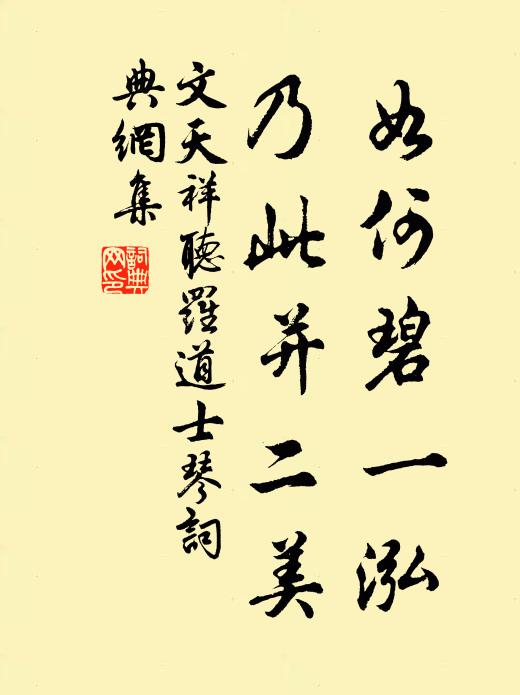 如何碧一泓
乃此并二美
文天祥聽羅道士琴詞
典網集
詞典網印